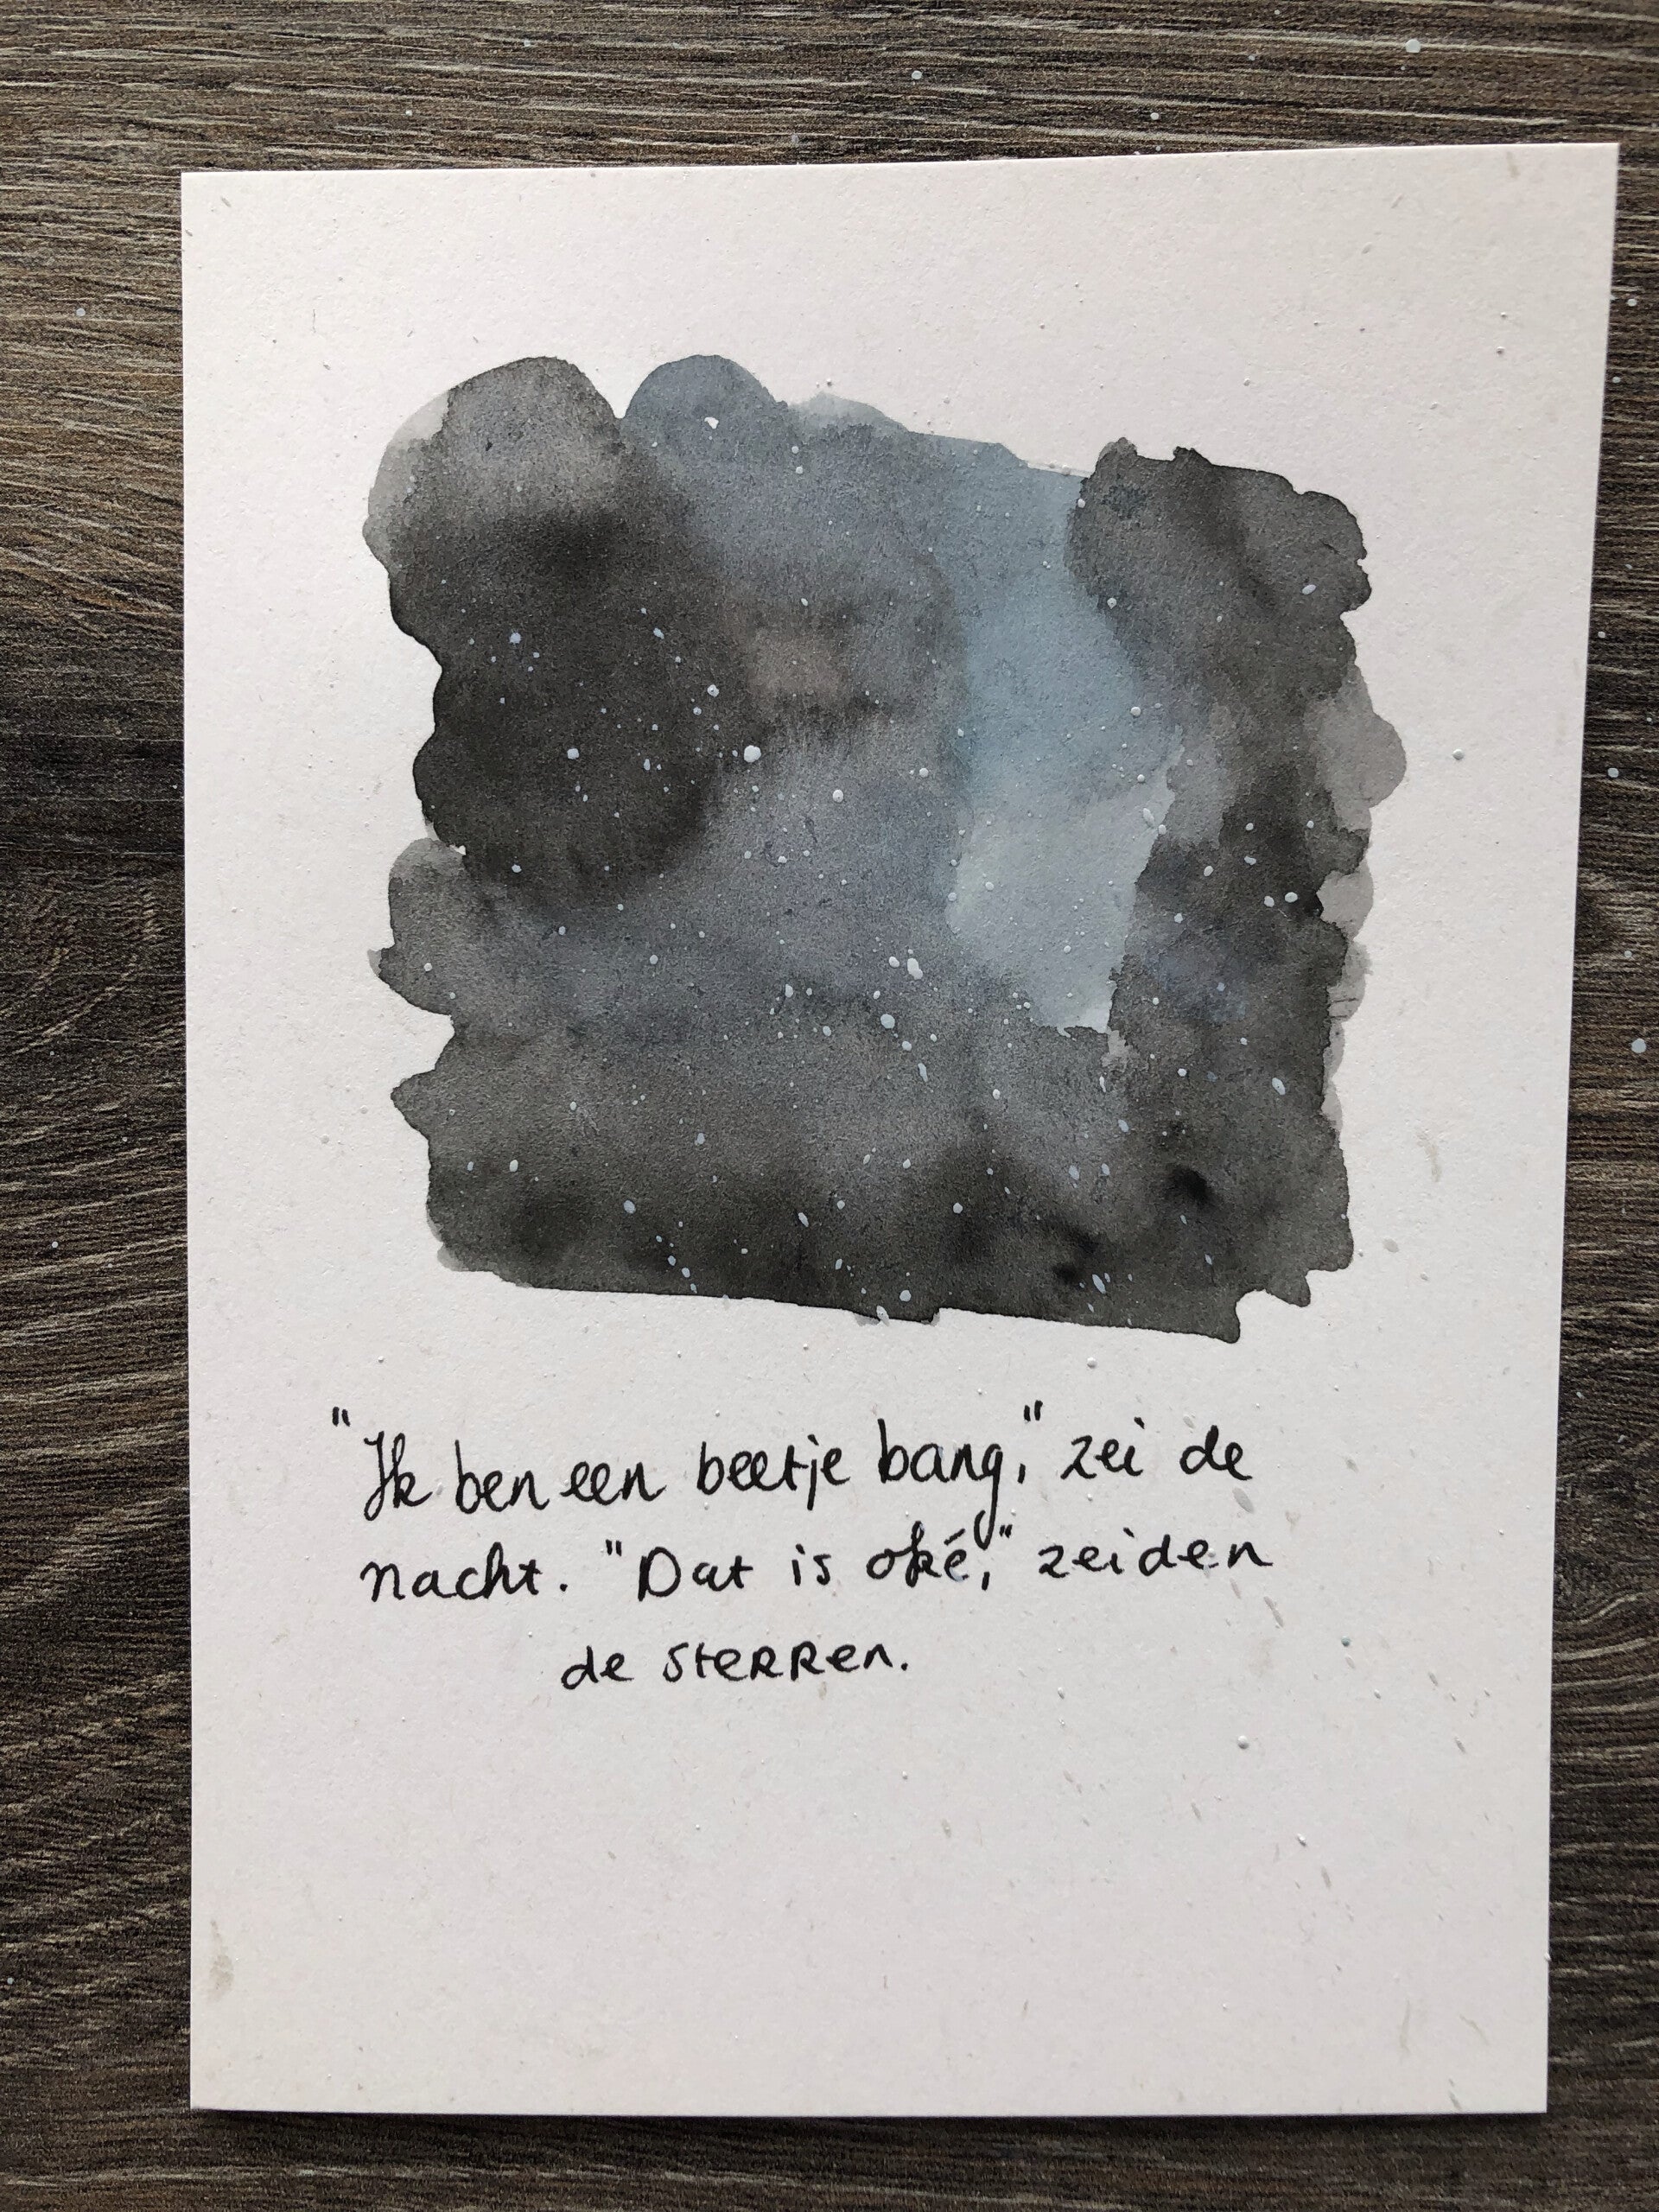 "Ik ben een beetje bang," zei de
nacht. "Dat is oké," zeiden
de sterren.